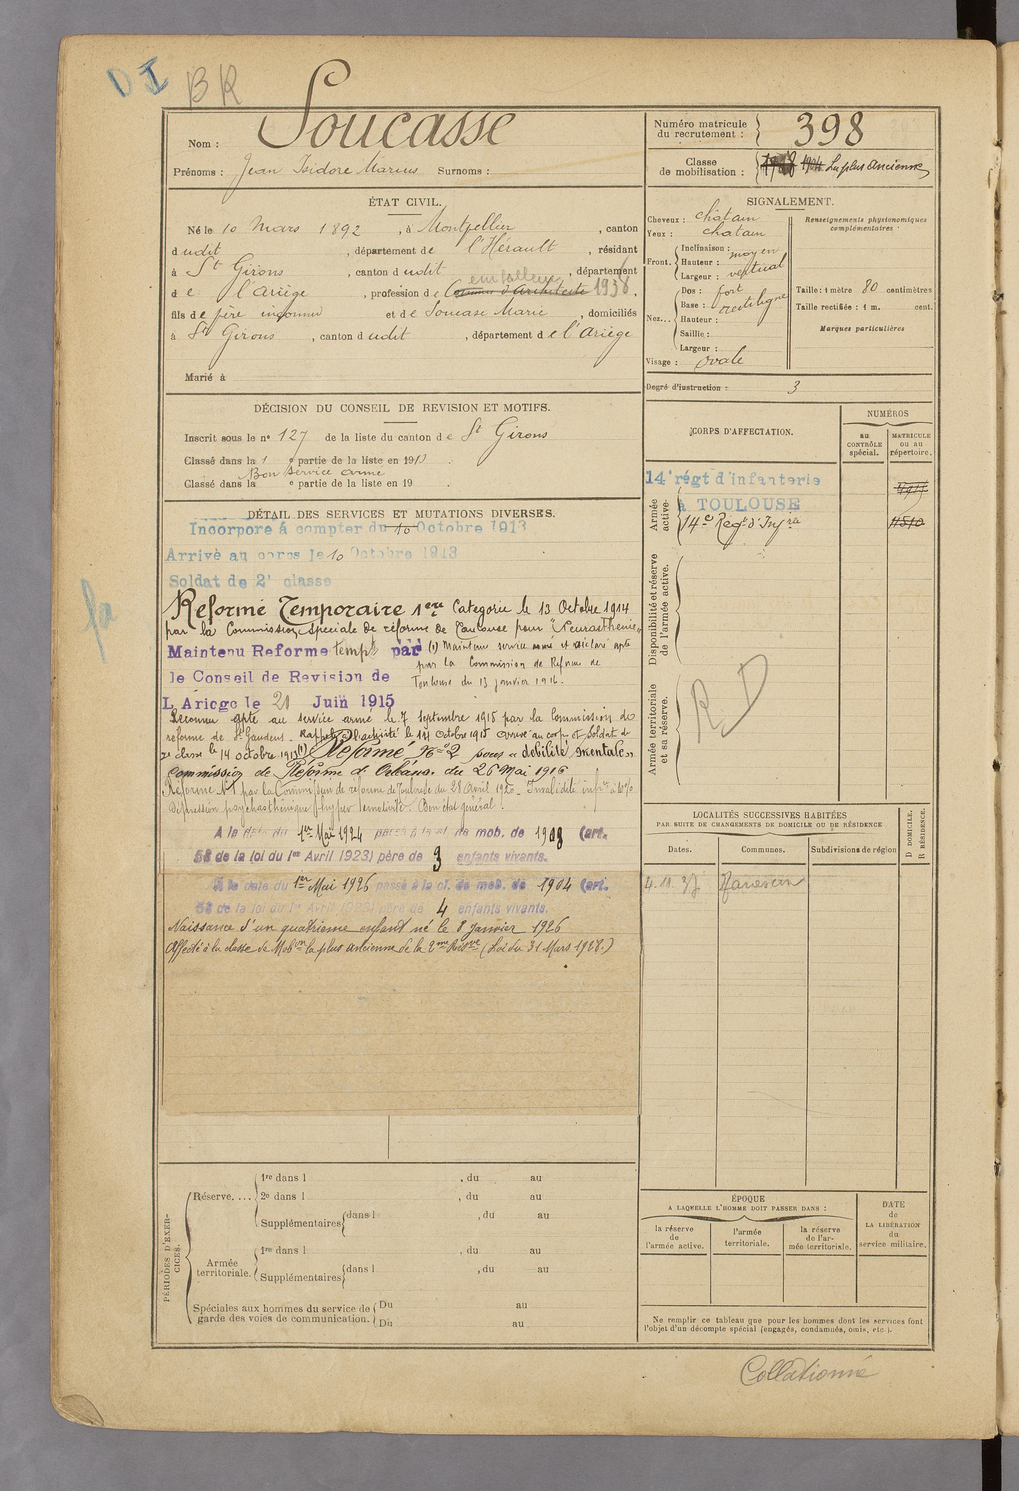 D I BR
Nom : Soucasse
Prénoms : Jean Isidore Marius Surnoms :
Numéro matricule du recrutement : 398
Classe de mobilisation : 1904 La plus Ancienne
ÉTAT CIVIL.
Né le 10 Mars 1892, à Montpellier, canton
d udit, département de l'Hérault, résidant
à St Girons, canton d udit, département
emballeur
d e l'Ariège, profession de Commis d'Architecte 1938,
fils de père inconnu et de Soucasse Marie, domiciliés
à St Girons, canton d udit, département d e l'Ariège
Marié à
SIGNALEMENT.
Cheveux : châtain
Yeux : châtain
Front. Inclinaison : moyen
Hauteur : vertical
Largeur :
Nez... Dos : fort
Base : rectiligne
Hauteur :
Saillie :
Largeur :
Visage : ovale
Renseignements physionomiques complémentaires :
Taille : 1 mètre 80 centimètres
Taille rectifiée : 1 m. cent.
Marques particulières
Degré d'instruction : 3
DÉCISION DU CONSEIL DE REVISION ET MOTIFS.
Inscrit sous le n° 127 de la liste du canton d e St Girons
Classé dans la 1 e partie de la liste en 1913.
Bon service armé
Classé dans la e partie de la liste en 19 .
DÉTAIL DES SERVICES ET MUTATIONS DIVERSES.
Incorporé à compter du 10 Octobre 1913
Arrivé au corps le 10 Octobre 1913
Soldat de 2e classe
Réformé Temporaire 1ere Catégorie le 13 Octobre 1914
par la Commission Spéciale de réforme de Toulouse pour "Neurasthénie"
Maintenu Reforme tempre par
le Conseil de Revision de
L'Ariege le 21 Juin 1915
(1) Maintenu service armé et déclaré apte
par la Commission de Réforme de
Toulouse du 13 janvier 1916.
Reconnu apte au service armé le 7 septembre 1915 par la Commission de
réforme de St Gaudens. Rappelé à l'activité le 14 octobre 1915 arrivé au corps et soldat de
2e classe le 14 octobre 1915 (1) Réformé No 2 pour "débilité mentale"
Commission de Réforme d'Orléans du 26 Mai 1916
Réformé N°1 par la Commission de réforme de Toulouse du 28 Avril 1920. Invalidité infre à 10%
Dépression psychasthénique. hyper émotivité. Bon état général.
A la date du 1er Mai 1924 passé à la cl. de mob. de 1908 (art.
58 de la loi du 1er Avril 1923) père de 3 enfants vivants.
A la date du 1er Mai 1926 passé à la cl. de mob. de 1904 (art.
58 de la loi du 1er Avril 1923) père de 4 enfants vivants.
Naissance d'un quatrième enfant né le 8 Janvier 1926
Affecté à la classe de Mobon la plus ancienne de la 2me Réserve (Loi du 31 Mars 1928.)
CORPS D'AFFECTATION.
NUMÉROS
AU CONTRÔLE spécial.
MATRICULE OU AU répertoire.
Armée active.
14e régt d'infanterie
à TOULOUSE
14e Regt d'Infrie
Disponibilité et réserve de l'armée active.
Armée territoriale et sa réserve.
R D
LOCALITÉS SUCCESSIVES HABITÉES
PAR SUITE DE CHANGEMENTS DE DOMICILE OU DE RÉSIDENCE
Dates. Communes. Subdivisions de région
D DOMICILE.
R RÉSIDENCE.
4.11.37
PÉRIODES D'EXERCICES.
Réserve.... 1re dans l , du au
2e dans l , du au
Supplémentaires dans l , du au
Armée territoriale. 1re dans l , du au
Supplémentaires dans l , du au
Spéciales aux hommes du service de garde des voies de communication. Du au
Du au
ÉPOQUE
A LAQUELLE L'HOMME DOIT PASSER DANS :
la réserve de l'armée active.
l'armée territoriale.
la réserve de l'armée territoriale.
DATE de LA LIBÉRATION du service militaire.
Ne remplir ce tableau que pour les hommes dont les services font
l'objet d'un décompte spécial (engagés, condamnés, omis, etc.).
Collationné